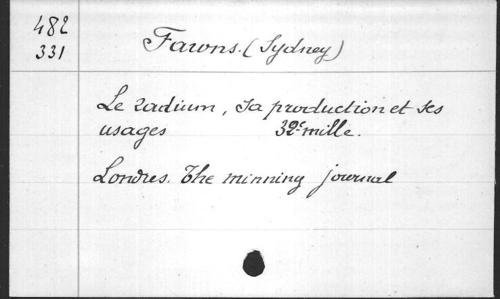 482
331
Fawns. (Sydney)
Le radium, sa production et ses
usages 32e mille.
Londres. The minning journal